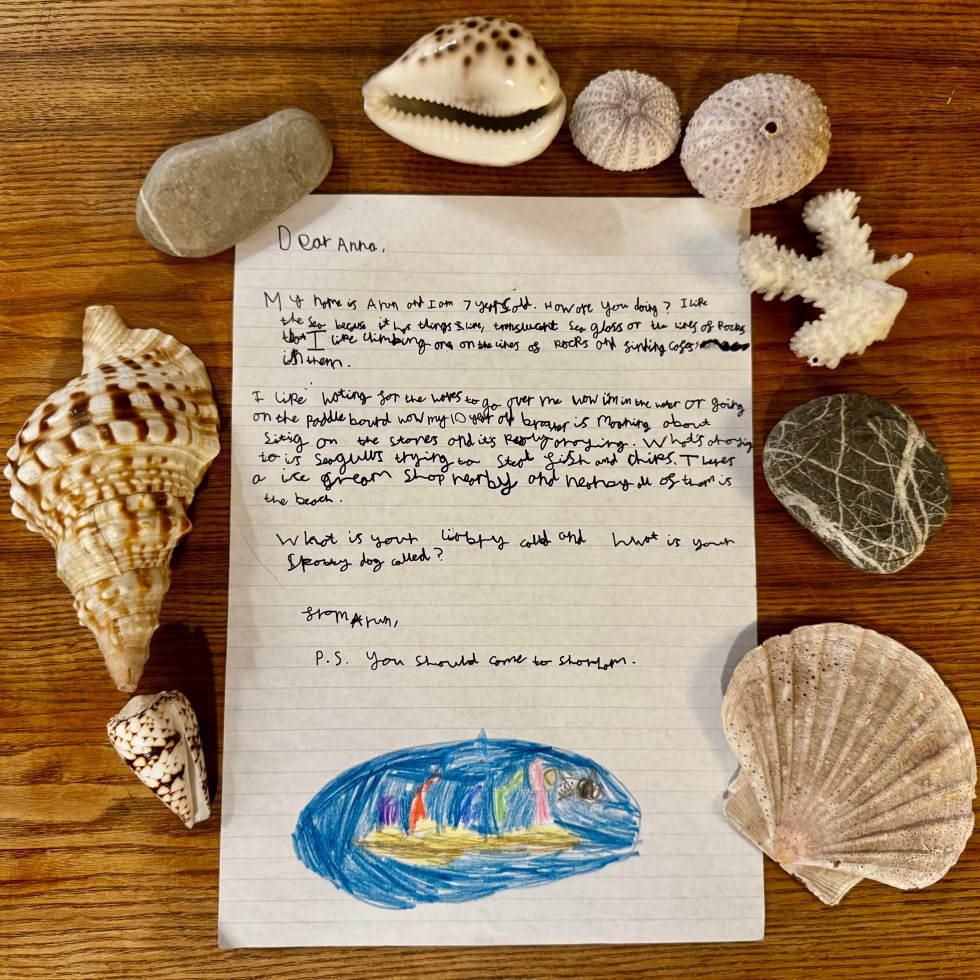 Dear Anna,
My name is Arun and I am 7 years old. How are you doing? I like
the Sea becuse it has things like, translucant Sea glass or the lines of Rocks
that I like climbing one on the lines of Rocks and finding caves,
in them.
I like wating for the waves to go over me wow im in the water or going
on the Paddle board wow my 10 year old brother is Moaning about
Sitig on the stones and its Realy anoying. What's anoying
to is Seagulls trying to steal fish and chips. Theres
a ice cream Shop nearby and nerbay all of tham is
the beach.
What is your called and what is your
dog called?
from Arun,
P.S. You should come to Shorham.